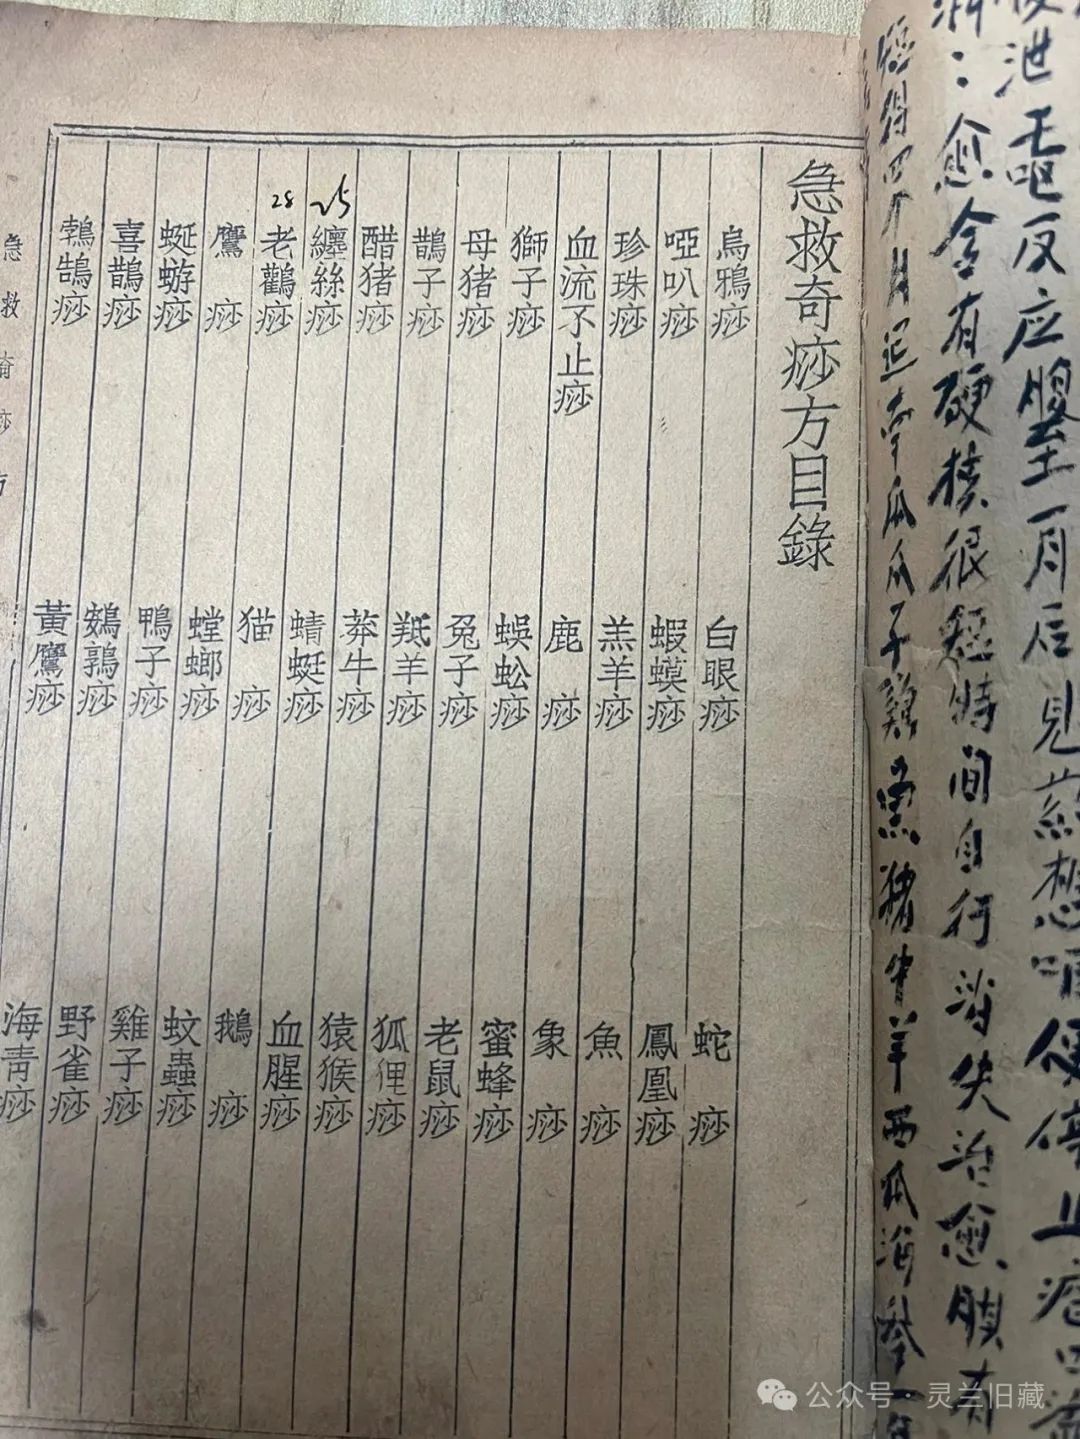 急救奇痧方目錄
烏鴉痧 白眼痧 蛇痧
啞叭痧 蝦蟆痧 鳳凰痧
珍珠痧 羔羊痧 魚痧
血流不止痧 鹿痧 象痧
獅子痧 蜈蚣痧 蜜蜂痧
母猪痧 兔子痧 老鼠痧
鵲子痧 羝羊痧 狐狸痧
醋猪痧 莽牛痧 猿猴痧
25
纏絲痧 蜻蜓痧 血腥痧
28
老鸛痧 猫痧 鵝痧
鷹痧 螳螂痧 蚊蟲痧
蜒蝣痧 鴨子痧 雞子痧
喜鵲痧 鵪鶉痧 野雀痧
鵓鴣痧 黃鷹痧 海青痧
急救奇痧方
泄 呕反应 一月后見 想 便停止
愈合有硬核很短時间自行消失治愈 有
月 南瓜瓜子雞 猪牛羊西瓜海参
公众号·灵兰旧藏